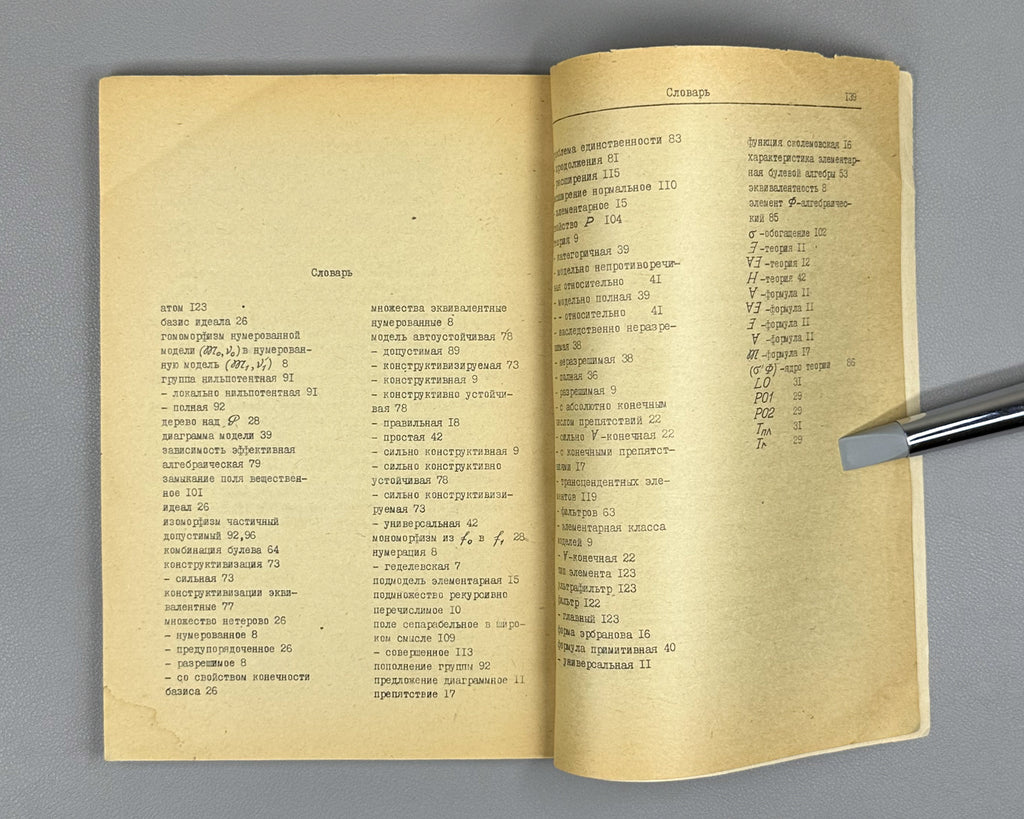 Словарь
атом 123
базис идеала 26
гомоморфизм нумерованной
модели (𝔐₀,ν₀) в нумерован-
ную модель (𝔐₁,ν₁) 8
группа нильпотентная 91
- локально нильпотентная 91
- полная 92
дерево над 𝒫 28
диаграмма модели 39
зависимость эффективная
алгебраическая 79
замыкание поля веществен-
ное 101
идеал 26
изоморфизм частичный
допустимый 92,96
комбинация булева 64
конструктивизация 73
- сильная 73
конструктивизации экви-
валентные 77
множество нетерово 26
- нумерованное 8
- предупорядоченное 26
- разрешимое 8
- со свойством конечности
базиса 26
множества эквивалентные
нумерованные 8
модель автоустойчивая 78
- допустимая 89
- конструктивизируемая 73
- конструктивная 9
- конструктивно устойчи-
вая 78
- правильная 18
- простая 42
- сильно конструктивная 9
- сильно конструктивно
устойчивая 78
- сильно конструктивизи-
руемая 73
- универсальная 42
мономорфизм из f₀ в f₁ 28
нумерация 8
- геделевская 7
подмодель элементарная 15
подмножество рекурсивно
перечислимое 10
поле сепарабельное в широ-
ком смысле 109
- совершенное 113
пополнение группы 92
предложение диаграммное 11
препятствие 17
Словарь 139
блема единственности 83
родолжения 81
расширения 115
ширение нормальное 110
элементарное 15
ойство P 104
еория 9
- категоричная 39
- модельно непротиворечи-
ая относительно 41
- модельно полная 39
- - относительно 41
- наследственно неразре-
имая 38
- неразрешимая 38
- полная 36
- разрешимая 9
- с абсолютно конечным
ислом препятствий 22
- сильно ∀-конечная 22
- с конечными препятст-
иями 17
- трансцендентных эле-
ентов 119
- фильтров 63
- элементарная класса
моделей 9
- ∀-конечная 22
тип элемента 123
ультрафильтр 123
фильтр 122
- главный 123
форма эрбранова 16
формула примитивная 40
- универсальная 11
функция сколемовская 16
характеристика элементар-
ная булевой алгебры 53
эквивалентность 8
элемент Φ-алгебраичес-
кий 85
σ -обогащение 102
∃ -теория 11
∀∃ -теория 12
H -теория 42
∀ -формула 11
∀∃ -формула 11
∃ -формула 11
∀ -формула 11
𝔐 -формула 17
(σ Φ) -ядро теории 86
LO 31
PO1 29
PO2 29
Tпл 31
Ir 29